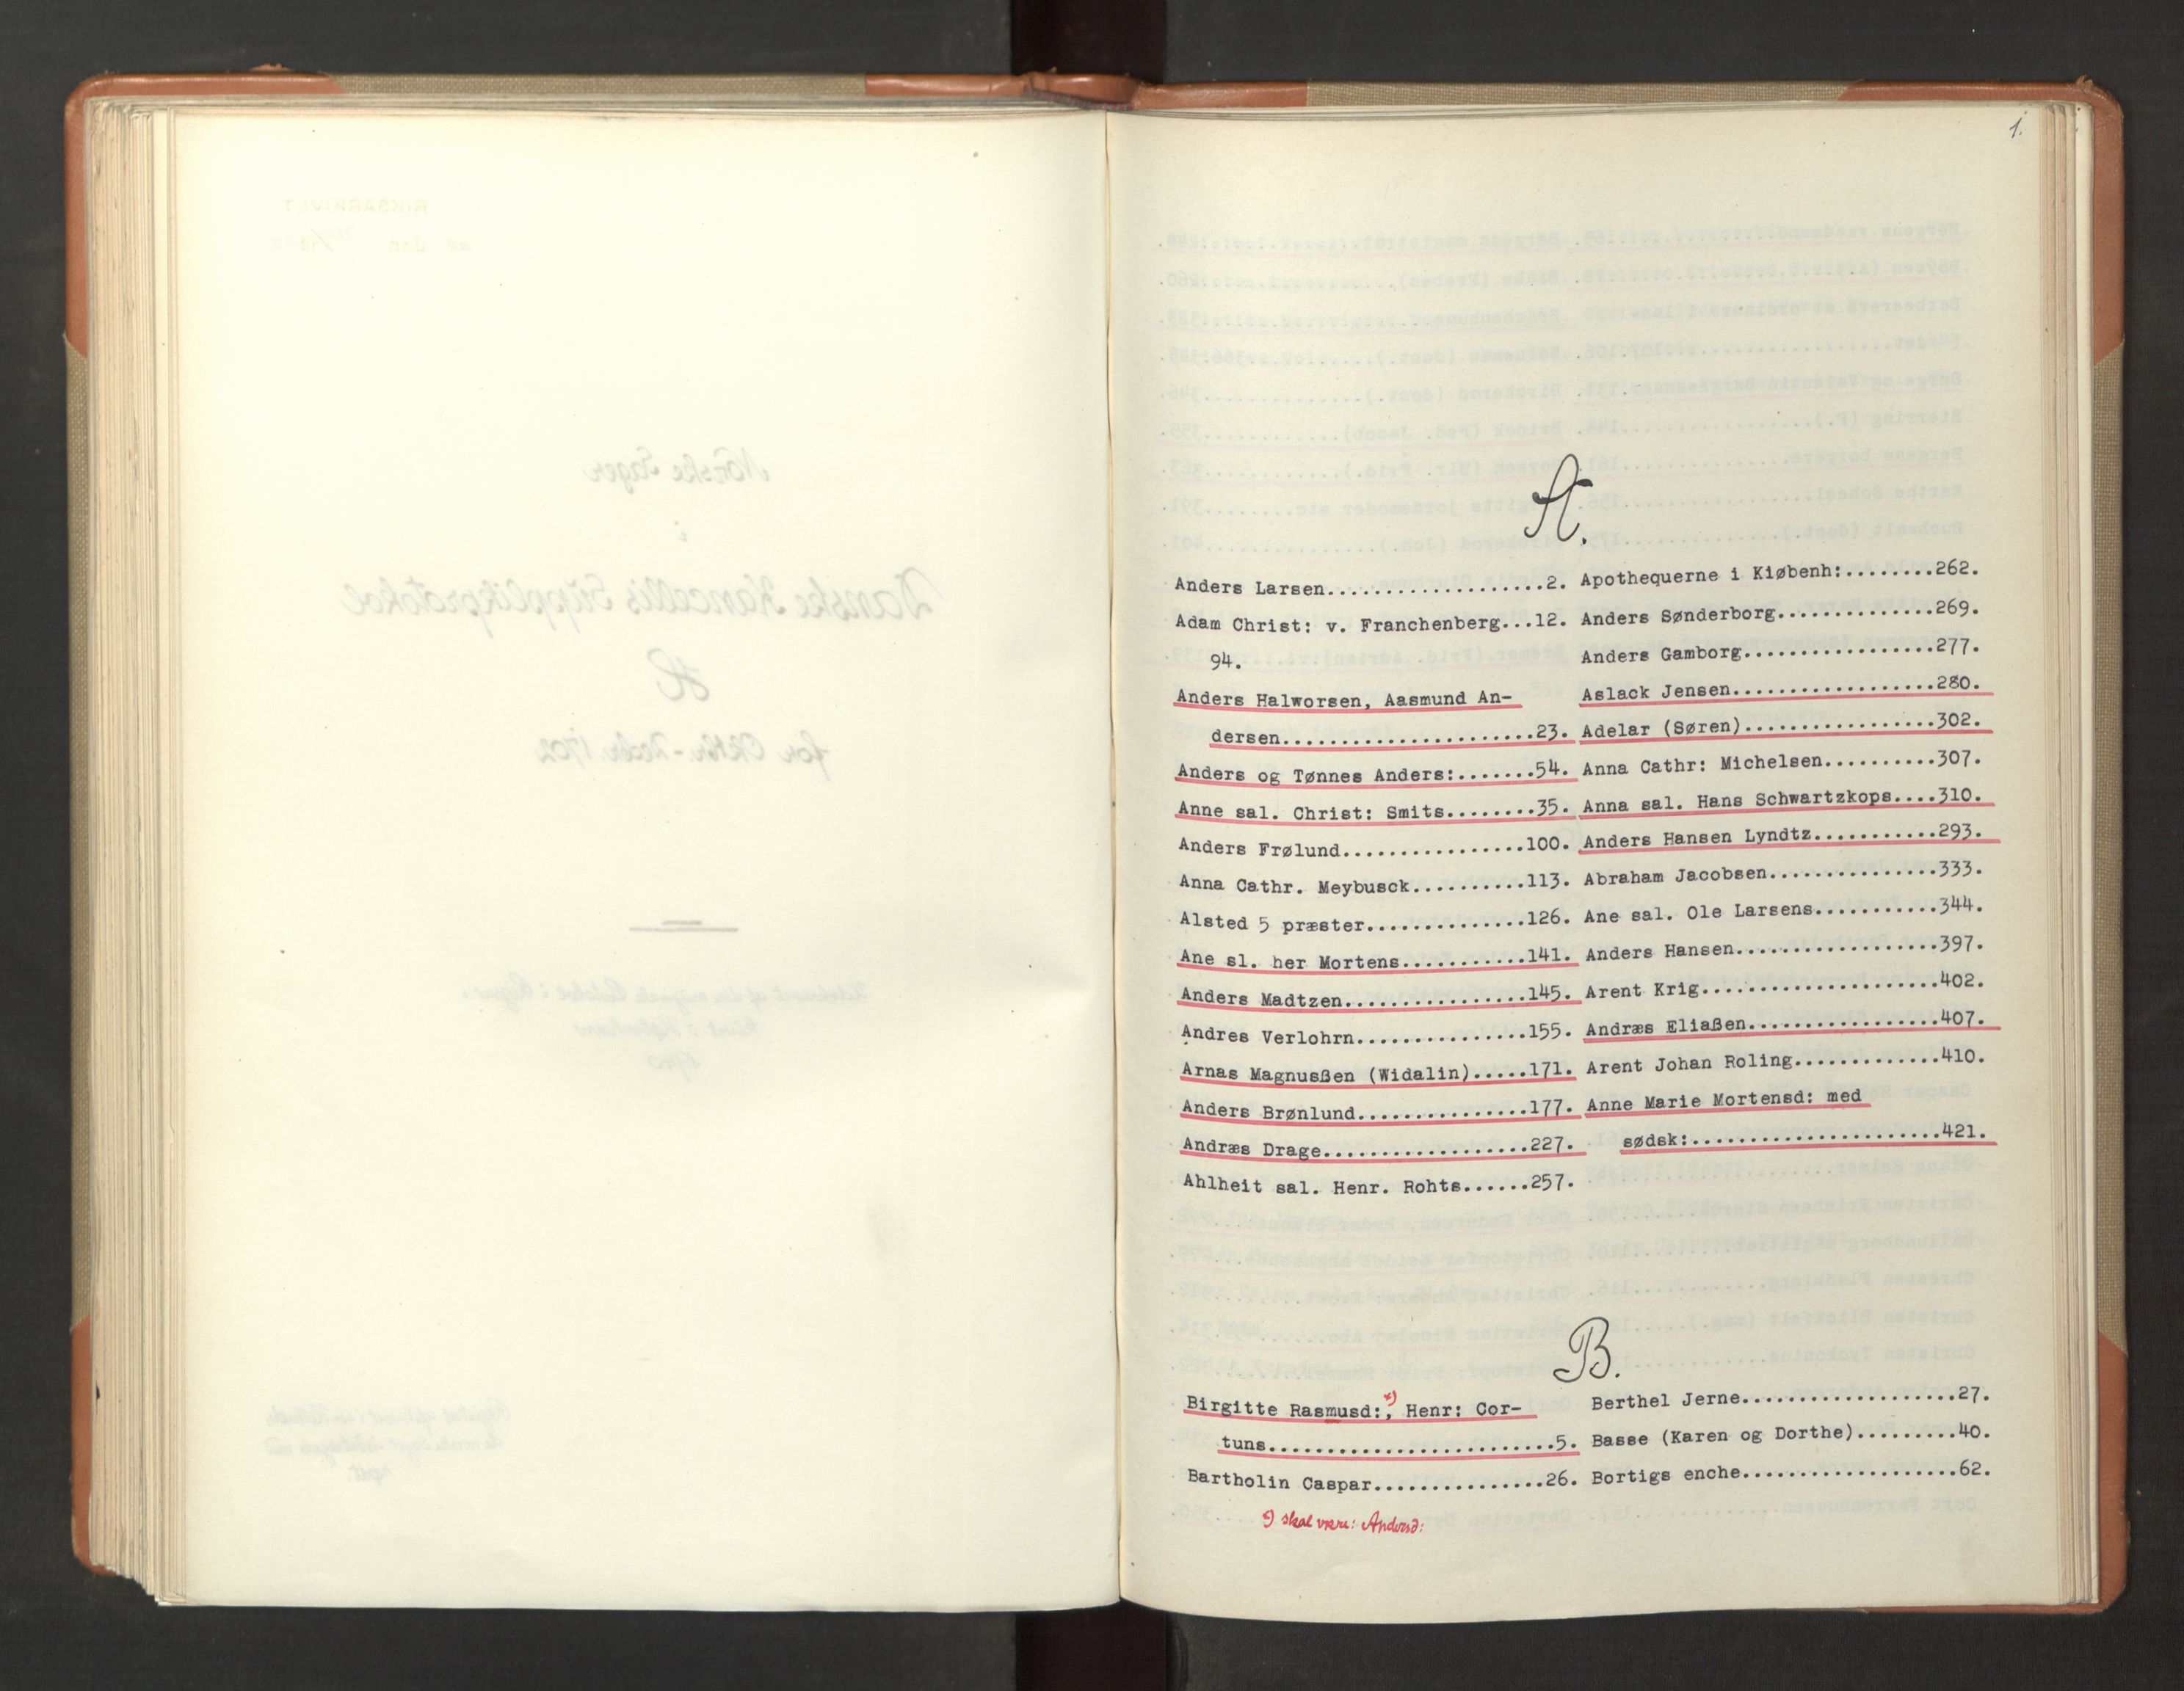 1.
A.
Anders Larsen...................2.
Adam Christ: v. Franchenberg...12.
94.
Anders Halworsen, Aasmund An-
dersen......................23.
Anders og Tønnes Anders:.......54.
Anne sal. Christ: Smits........35.
Anders Frølund................100.
Anna Cathr. Meybusck..........113.
Alsted 5 præster..............126.
Ane sl. her Mortens...........141.
Anders Madtzen................145.
Andres Verlohrn...............155.
Arnas Magnusßen (Widalin).....171.
Anders Brønlund...............177.
Andræs Drage..................227.
Ahlheit sal. Henr. Rohts......257.
Apothequerne i Kiøbenh:........262.
Anders Sønderborg..............269.
Anders Gamborg.................277.
Aslack Jensen..................280.
Adelar (Søren).................302.
Anna Cathr: Michelsen..........307.
Anna sal. Hans Schwartzkops....310.
Anders Hansen Lyndtz...........293.
Abraham Jacobsen...............333.
Ane sal. Ole Larsens...........344.
Anders Hansen..................397.
Arent Krig.....................402.
Andræs Eliaßen.................407.
Arent Johan Roling.............410.
Anne Marie Mortensd: med
sødsk:......................421.
B.
Birgitte Rasmusd:*), Henr: Cor-
tuns.........................5.
Bartholin Caspar...............26.
Berthel Jerne...................27.
Basse (Karen og Dorthe).........40.
Bortigs enche...................62.
*) skal være: Andersd:
Norske Sager
i
Danske Kancellis Supplikprotokol
H
for Oktbr.-Decbr. 1702